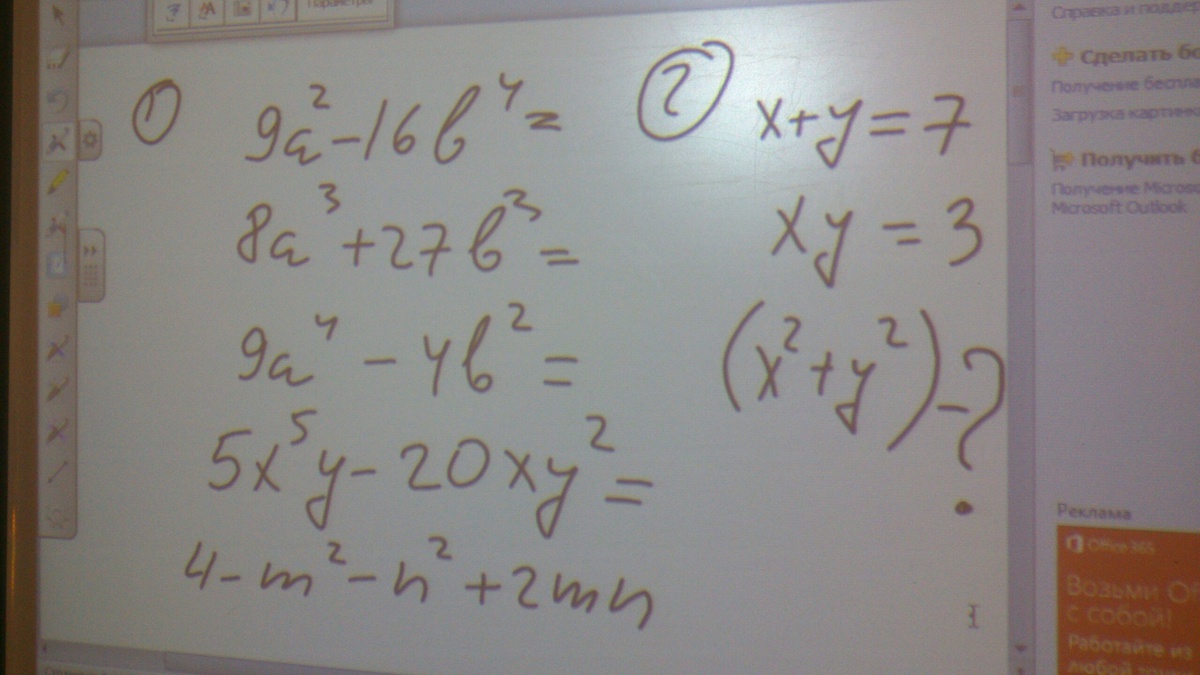 Параметры
① 9a² - 16b⁴ =
8a³ + 27b³ =
9a⁴ - 4b² =
5x⁵y - 20xy² =
4 - m² - n² + 2mn
② x + y = 7
xy = 3
(x² + y²) - ?
Справка и
Сделать
Получение
Загрузка
Получить
Получение
Microsoft Outlook
Реклама
Office 365
Возьми
с собой!
Работайте из
любой